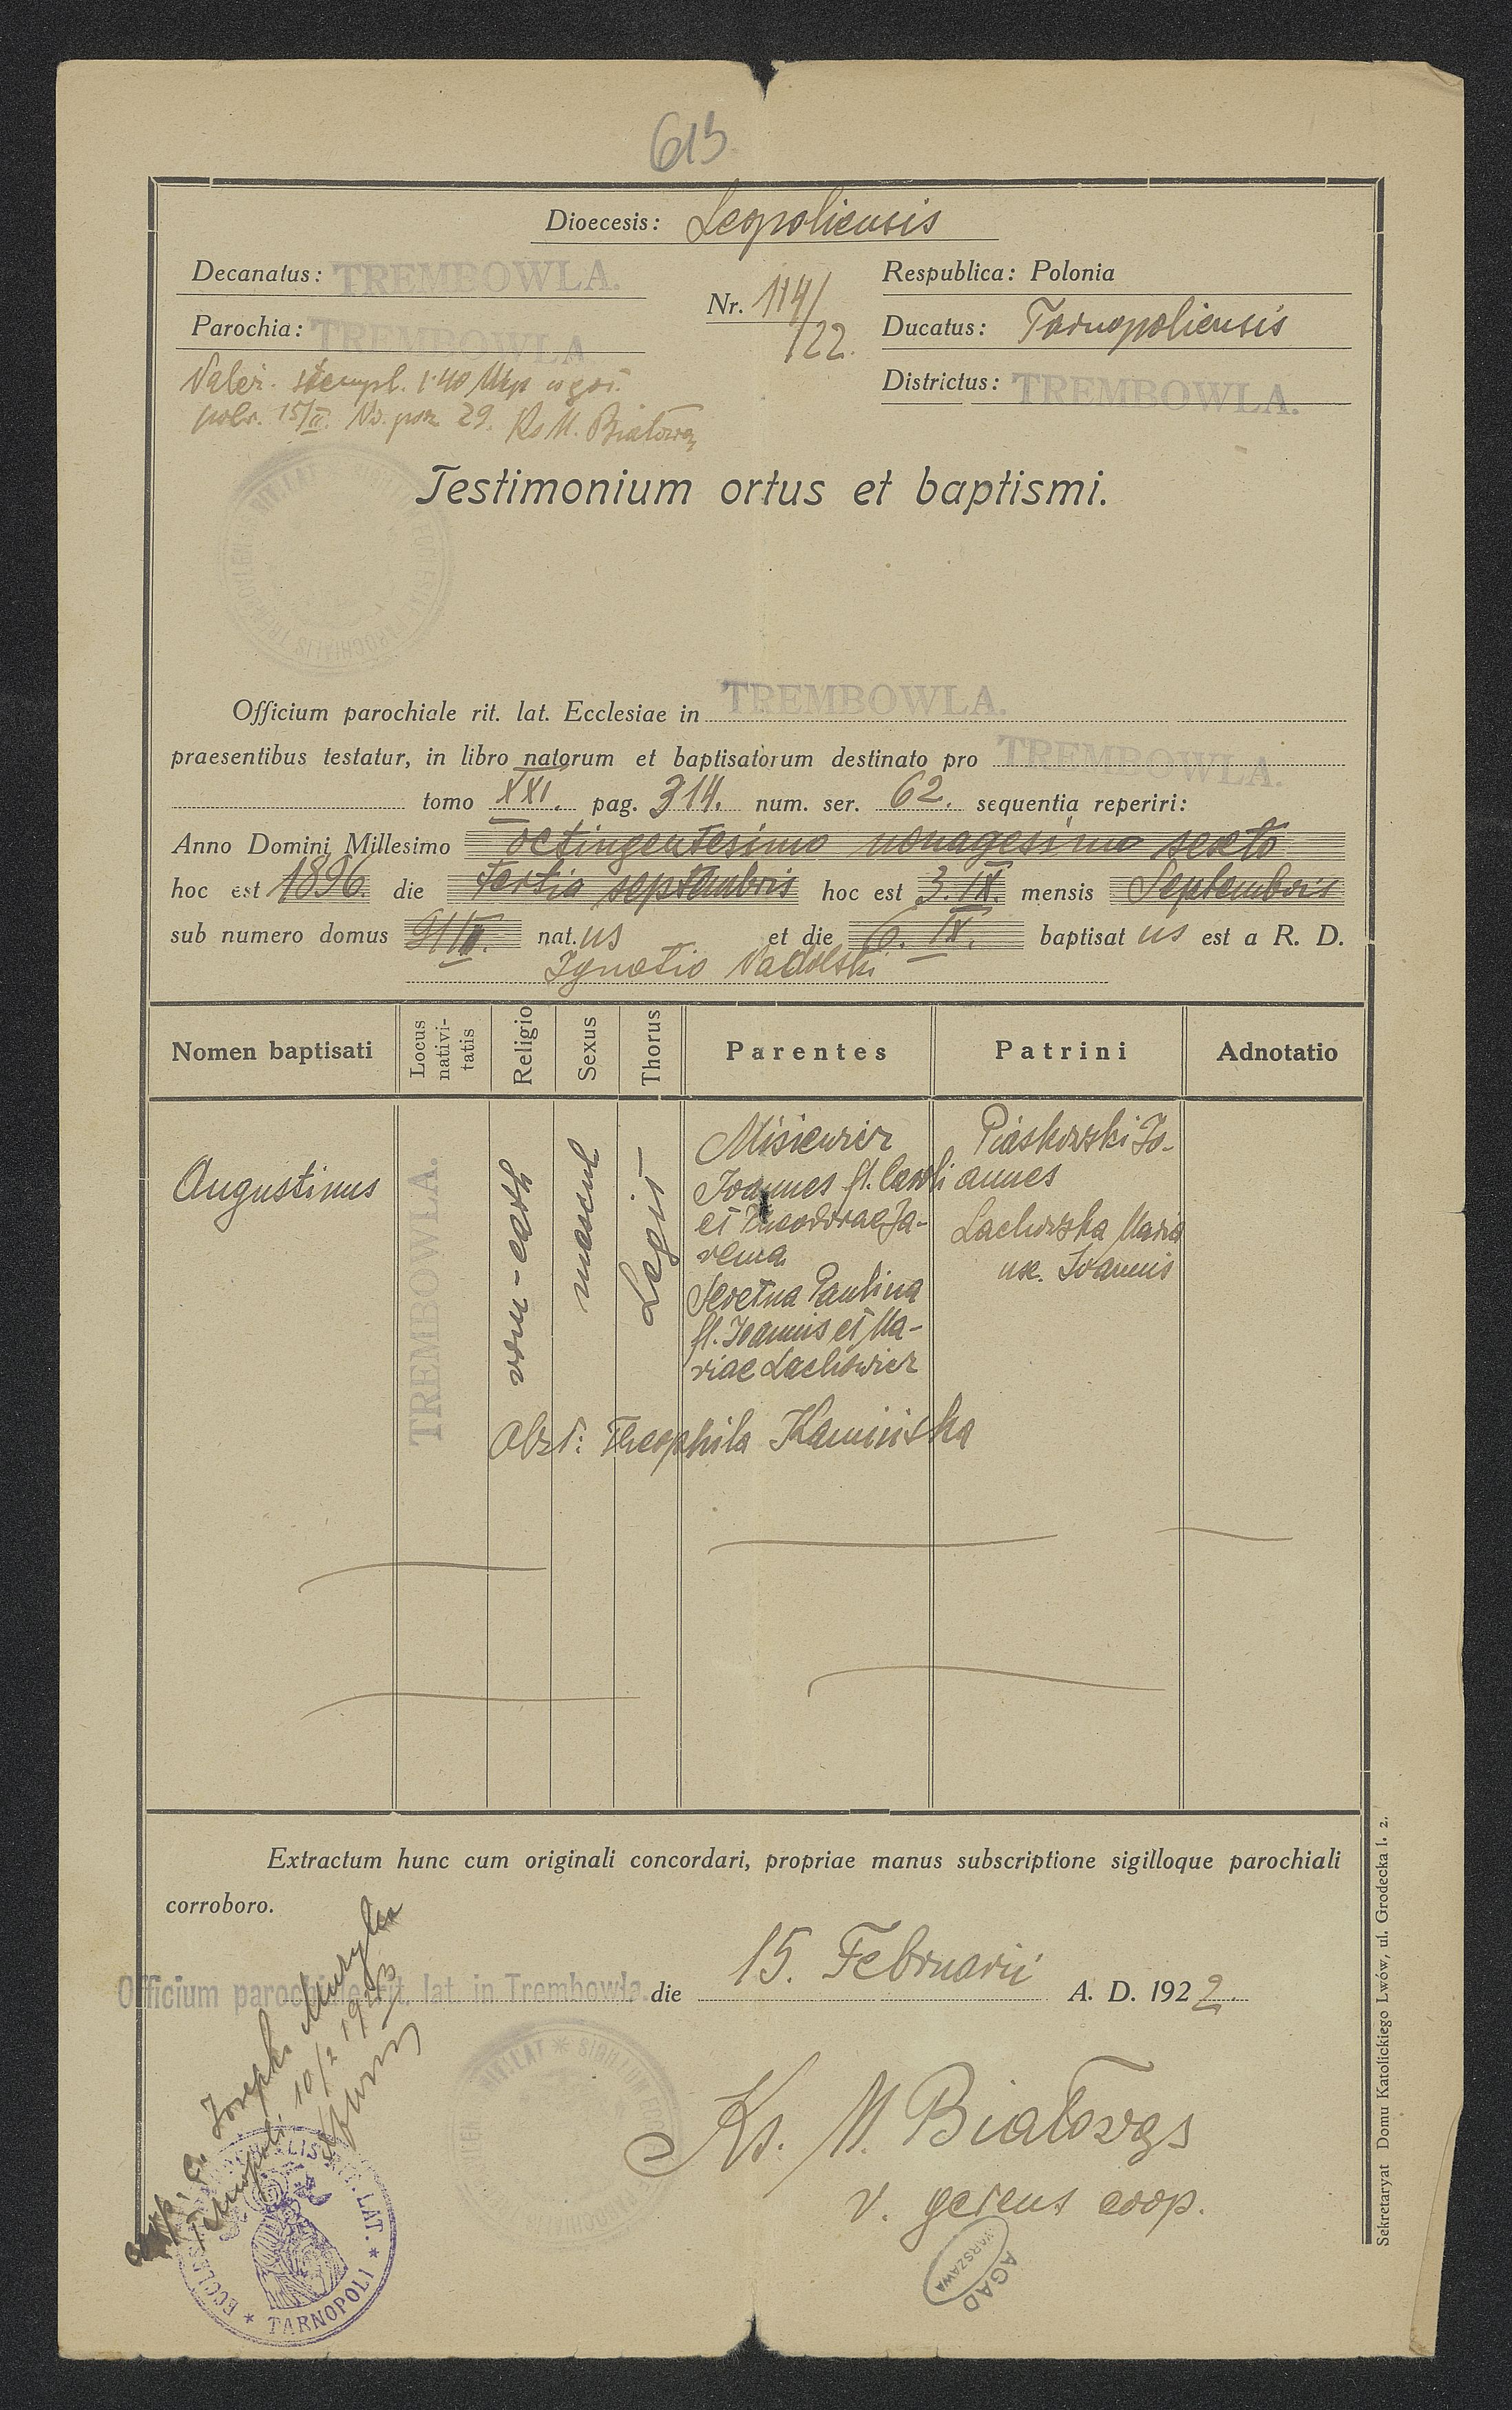 613
Dioecesis: Leopoliensis
Decanatus: TREMBOWLA.
Respublica: Polonia
Nr. 114/
/22.
Parochia: TREMBOWLA
Ducatus: Tarnopoliensis
Districtus: TREMBOWLA.
Należ. stempl. 1·40 Mkp
pobr. 15/II. No. poz. 29. Ks M.
Testimonium ortus et baptismi.
Officium parochiale rit. lat. Ecclesiae in TREMBOWLA.
praesentibus testatur, in libro natorum et baptisatorum destinato pro TREMBOWLA.
tomo XXI. pag. 314. num. ser. 62. sequentia reperiri:
Anno Domini Millesimo octingentesimo nonagesimo sexto
hoc est 1896. die tertia septembris hoc est 3. IX. mensis Septembris
sub numero domus nat.us et die 6. IX. baptisat us est a R. D.
Ignatio Nadolski
Nomen baptisati
Locus nativi-tatis
Religio
Sexus
Thorus
Parentes
Patrini
Adnotatio
Augustinus
TREMBOWLA.
rom-cath
mascul
Legit
Misiewicz
Joannes fl. Caroli
et Theodorae Ja-
rema
Seretna Paulina
fl. Joannis et Ma-
riae Lachowicz
Piaskowski Jo-
annes
Lachowska Maria
ux. Joannis
Obst: Theophila Kamińska
Extractum hunc cum originali concordari, propriae manus subscriptione sigilloque parochiali
corroboro.
Officium parochiale rit. lat. in Trembowla. die 15. Februarii A. D. 1922.
Ks. M. Białowąs
v. gerens coop.
Josepha
10/2 1923
TARNOPOLI
AGAD
WARSZAWA
Sekretaryat Domu Katolickiego Lwów, ul. Grodecka l. 2.